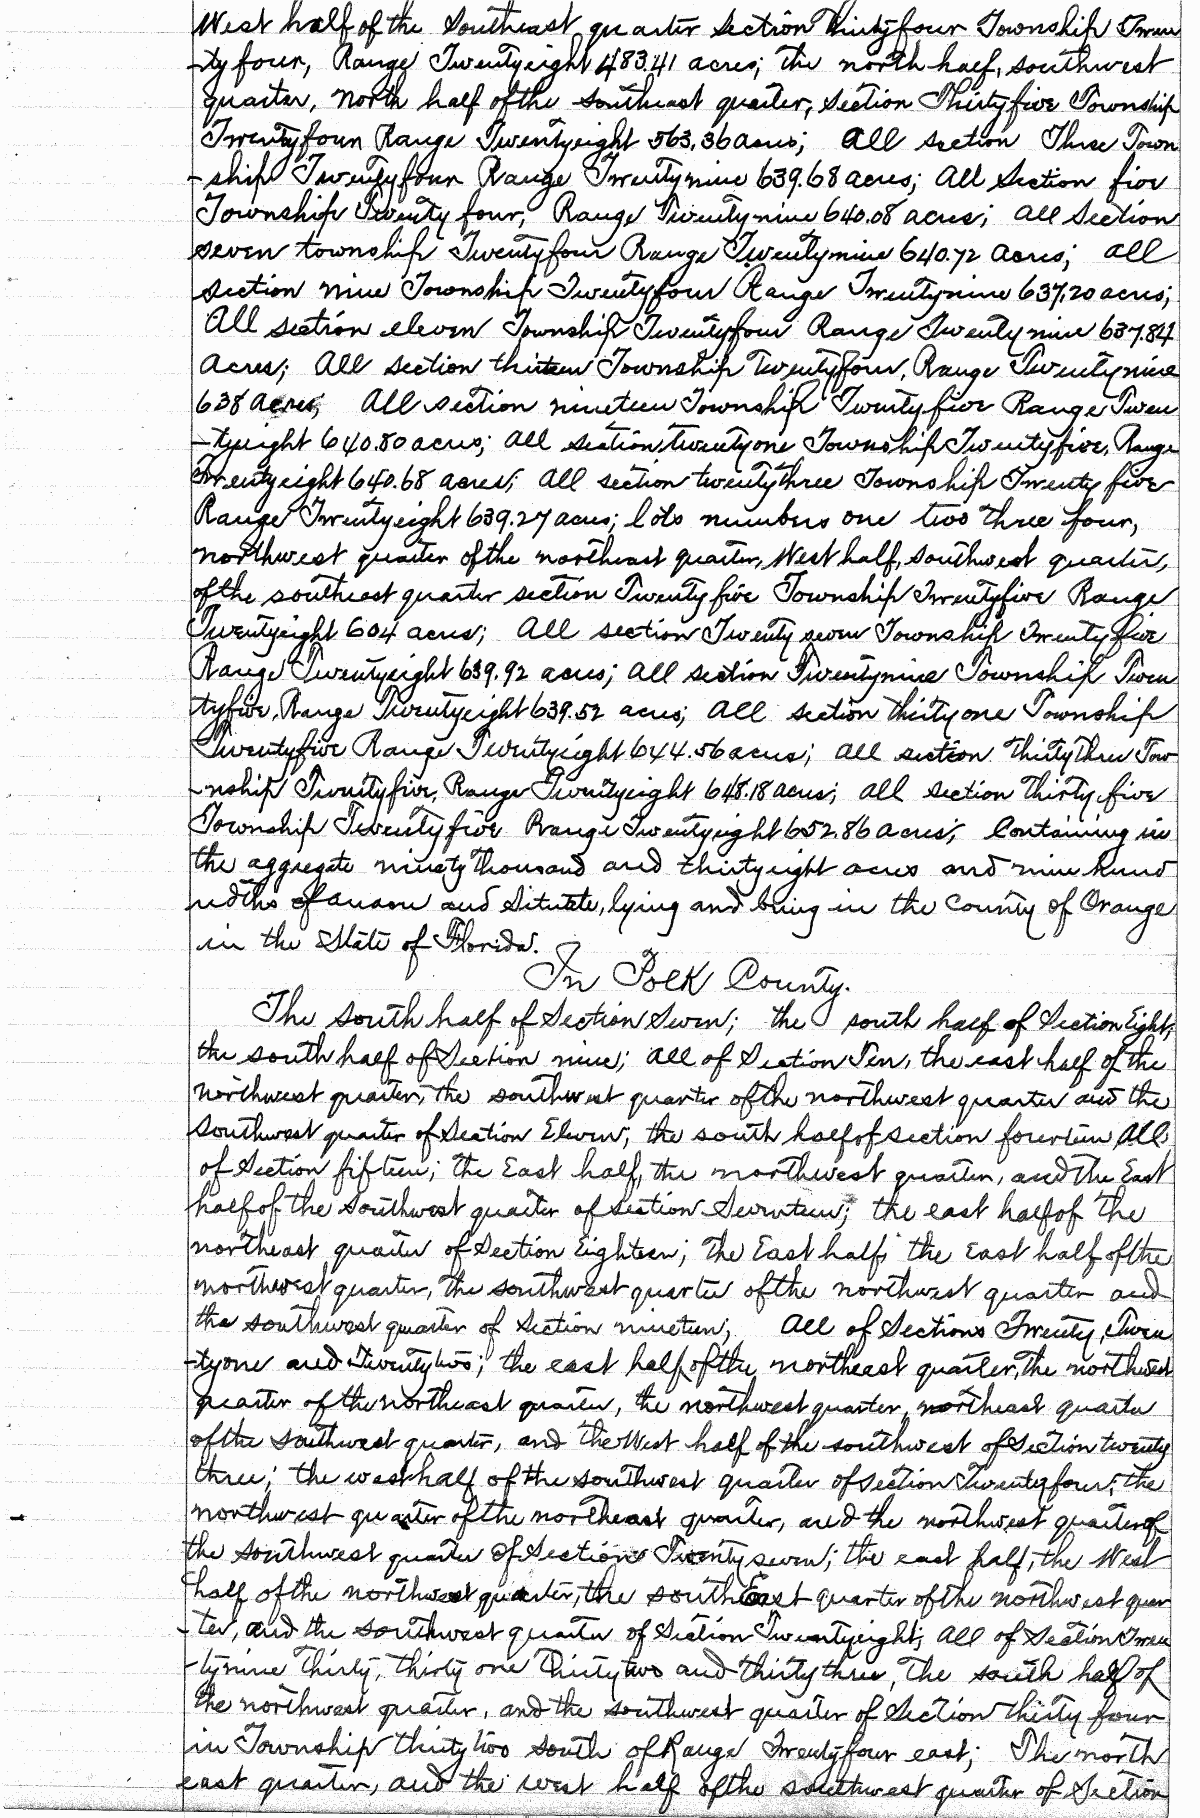 West half of the Southeast quarter section Thirtyfour Township Twen
-ty four, Range Twentyeight 483.41 acres; the north half, southwest
quarter, north half of the southeast quarter, section Thirtyfive Township
Twentyfour Range Twentyeight 563.36 acres; All section Three Town
-ship Twentyfour Range Twentynine 639.68 acres; All Section five
Township Twenty four, Range Twentynine 640.08 acres; All Section
seven township Twentyfour Range Twentynine 640.72 acres; All
section nine Township Twentyfour Range Twentynine 637.20 acres;
All section eleven Township Twentyfour Range Twenty nine 637.84
Acres; All section thirteen Township Twentyfour, Range Twentynine
638 Acres; All section nineteen Township Twenty five Range Twen
-tyeight 640.80 acres; All section twentyone Township Twentyfive, Range
Twentyeight 640.68 acres; All section twentythree Township Twenty five
Range Twentyeight 639.27 acres; lots numbers one two three four,
northwest quarter of the northeast quarter, West half, southwest quarter,
of the southeast quarter section Twenty five Township Twentyfive Range
Twentyeight 604 acres; All section Twenty seven Township Twenty five
Range Twentyeight 639.92 acres; All section Twentynine Township Twen
tyfive, Range Twentyeight 639.52 acres; All section thirty one Township
Twentyfive Range Twentyeight 644.56 acres; All section thirtythree Tow
-nship Twentyfive, Range Twentyeight 648.18 acres; All section Thirty five
Township Twentyfive Range Twentyeight 652.86 acres; Containing in
the aggregate ninety thousand and thirtyeight acres and nine hund
redths of an acre and Situate, lying and being in the County of Orange
in the State of Florida.
In Polk County.
The south half of Section Seven; the south half of Section Eight;
the south half of Section nine; All of Section Ten, the east half of the
northwest quarter, the southwest quarter of the northwest quarter and the
Southwest quarter of Section Eleven; the south half of section fourteen All
of Section fifteen; the East half, the northwest quarter, and the East
half of the Southwest quarter of Section Seventeen; the east half of the
northeast quarter of Section Eighteen; the East half; the East half of the
northwest quarter, the southwest quarter of the northwest quarter and
the southwest quarter of Section nineteen; All of Sections Twenty, Twen
-tyone and Twentytwo; the east half of the northeast quarter, the northwest
quarter of the northeast quarter, the northwest quarter, northeast quarter
of the Southwest quarter, and the West half of the southwest of Section twenty
three; the west half of the southwest quarter of section Twentyfour; the
northwest quarter of the northeast quarter, and the northwest quarter of
the southwest quarter of Section Twenty seven; the east half, the West
half of the northwest quarter, the southEast quarter of the northwest quar
-ter, and the southwest quarter of Section Twentyeight; All of Section Twen
-tynine Thirty, thirty one Thirtytwo and thirty three, The south half of
the northwest quarter, and the southwest quarter of Section thirty four
in Township thirty two south of Range Twentyfour east; The north
east quarter, and the west half of the southwest quarter of Section